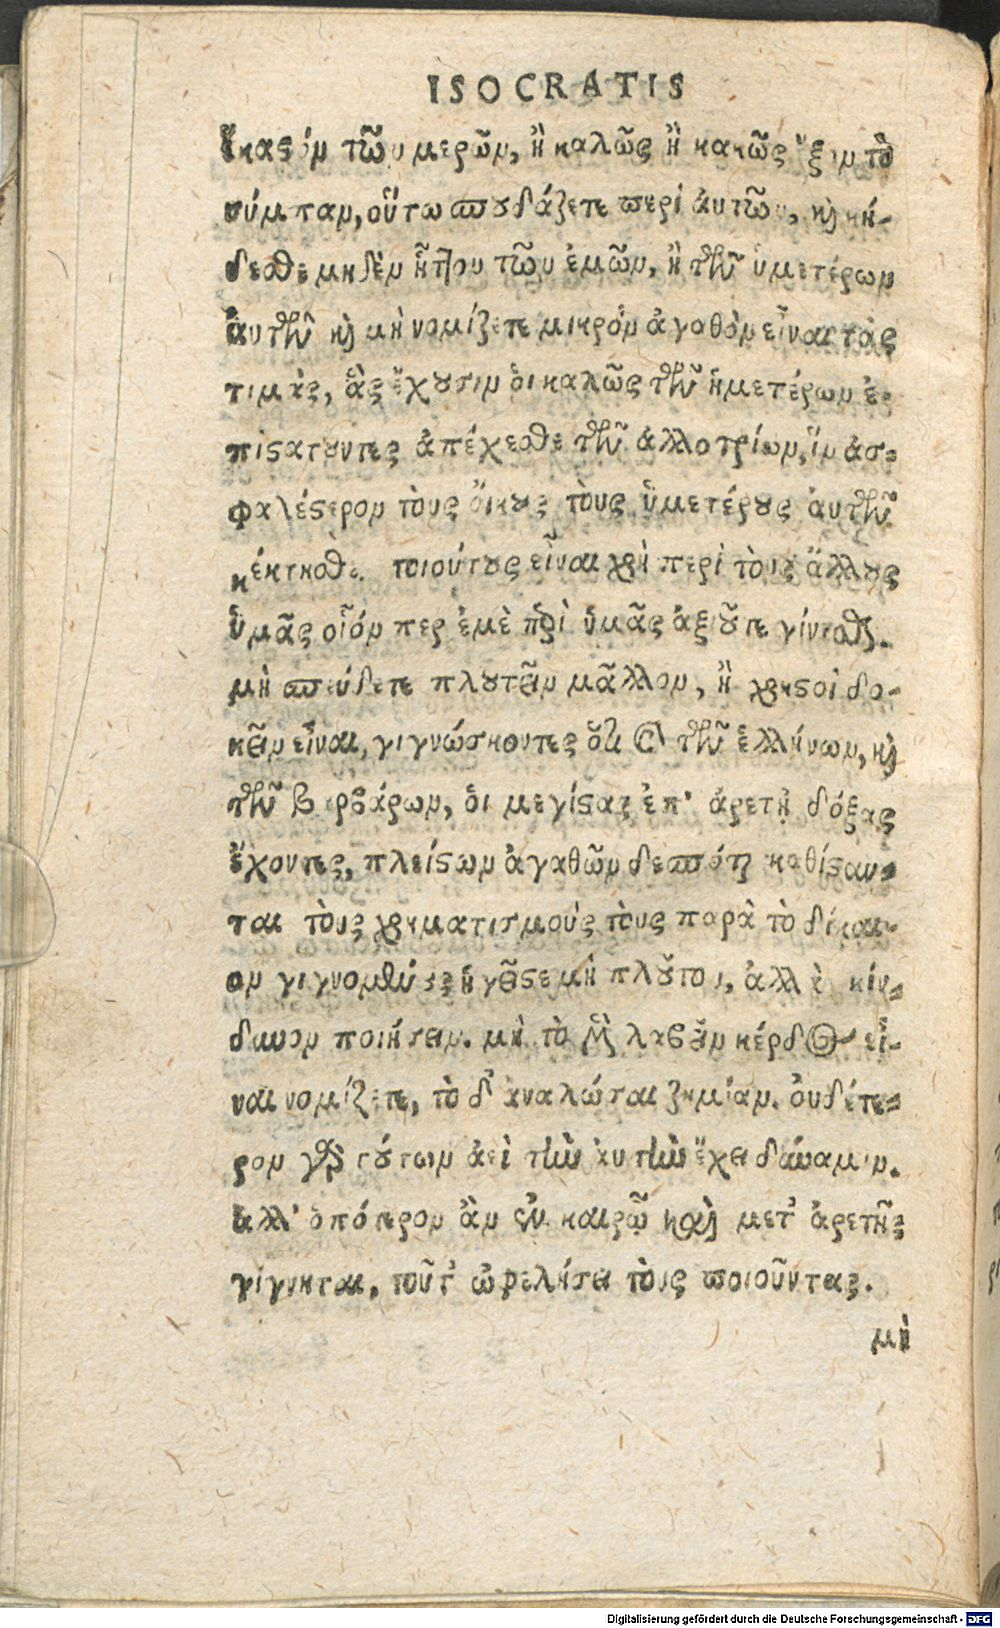 ISOCRATIS
ἕκαςον τῶν μερῶν, ἢ καλῶς ἢ κακῶς ἕξον τὸ
σύμπαν, οὕτω σπουδάζετε περὶ αὐτῶν, κὴ κή-
δεσθε μηδὲν ἧττον τῶν ἐμῶν, ἢ τῶν ὑμετέρων
αὐτῶν κὴ μὴ νομίζετε μικρὸν ἀγαθὸν εἶναι τὰς
τιμὰς, ἃς ἔχουσιν ὁι καλῶς τῶν ἡμετέρων ἐ-
πιςατοῦντες ἀπέχεσθε τῶν ἀλλοτρίων, ἵν ἀσ-
φαλέςερον τοὺς ὄικους τοὺς ὑμετέρους ἀυτῶν
κέκτησθε. τοιούτους εἶναι χρὴ περὶ τοὺς ἄλλους
ὑμᾶς οἷόν περ ἐμὲ περὶ ὑμᾶς ἀξιοῦτε γίνεσθαι.
μὴ σπεύδετε πλουτεῖν μᾶλλον, ἢ χρηςοὶ δο-
κεῖν εἶναι, γιγνώσκοντες ὅτι καὶ τῶν ἑλλήνων, κὴ
τῶν βαρβάρων, ὁι μεγίςας ἐπ' ἀρετῇ δόξας
ἔχοντες, πλείςων ἀγαθῶν δεσπόται καθίςαν-
ται τοὺς χρηματισμοὺς τοὺς παρὰ τὸ δίκαι-
ον γιγνομένους ἡγεῖςε μὴ πλοῦτον, ἀλλὰ κίν-
δυνον ποιήσειν. μὴ τὸ μὲν λαβεῖν κέρδος εἶ-
ναι νομίζετε, τὸ δ' ἀναλώσαι ζημίαν. ὀυδέτε-
ρον γὰρ τούτων ἀεὶ τὴν ἀυτὴν ἔχει δύναμιν.
ἀλλ' ὁπότερον ἂν ἐν καιρῷ καὶ μετ' ἀρετῆς
γίγνηται, τοῦτ' ὠφελήσει τοὺς ποιοῦντας.
μὴ
Digitalisierung gefördert durch die Deutsche Forschungsgemeinschaft - DFG